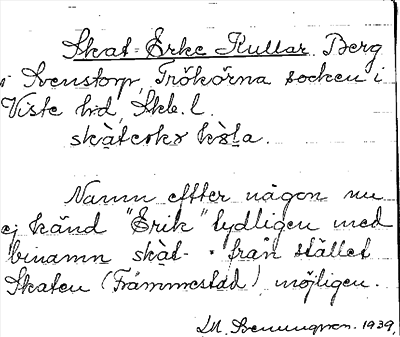 Skat-Erke Kullar. Berg
i Svenstorp, Trökörna socken i
Viste hd, Skb. l.
skàterkə kòla.
Namn efter någon nu
ej känd "Erik" tydligen med
binamn skàt- från stället
Skaten (Främmestad) möjligen.
1939.